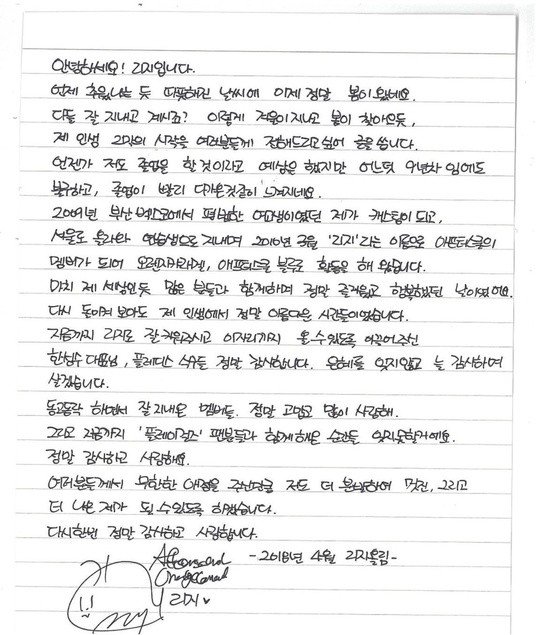 안녕하세요! 리지입니다.
언제 추웠냐는 듯 따뜻해진 날씨에 이제 정말 봄이 왔네요.
다들 잘 지내고 계시죠? 이렇게 겨울이 지나고 봄이 찾아오듯,
제 인생 2막의 시작을 여러분들께 전해드리고 싶어 글을 씁니다.
언젠가 저도 졸업을 할 것이라고 예상은 했지만 어느덧 9년차 임에도
불구하고, 졸업이 빨리 다가온것같이 느껴지네요.
2009년 부산 벡스코에서 평범한 여고생이었던 제가 캐스팅이 되고,
서울로 올라와 연습생으로 지내며 2010년 3월 '리지'라는 이름으로 애프터스쿨의
멤버가 되어 오렌지캬라멜, 애프터스쿨 블루로 활동을 해 왔습니다.
마치 제 세상인듯 많은 분들과 함께하며 정말 즐거웠고 행복했던 날이였어요.
다시 돌이켜 보아도 제 인생에서 정말 아름다운 시간들이었습니다.
지금까지 리지로 잘 키워주시고 이자리까지 올 수 있도록 이끌어주신
한성수 대표님, 플레디스 식구들 정말 감사합니다. 은혜를 잊지않고 늘 감사하며
살겠습니다.
동고동락 하면서 잘 지내온 멤버들. 정말 고맙고 많이 사랑해.
그리고 지금까지 '플레이걸즈' 팬분들과 함께 해온 순간들 잊지못할거예요.
정말 감사하고 사랑해요.
여러분들께서 무한한 애정을 주신만큼 저도 더 분발하여 멋진, 그리고
더 나은 제가 될 수 있도록 하겠습니다.
다시한번 정말 감사하고 사랑합니다.
-2018년 4월 리지올림-
리지♥